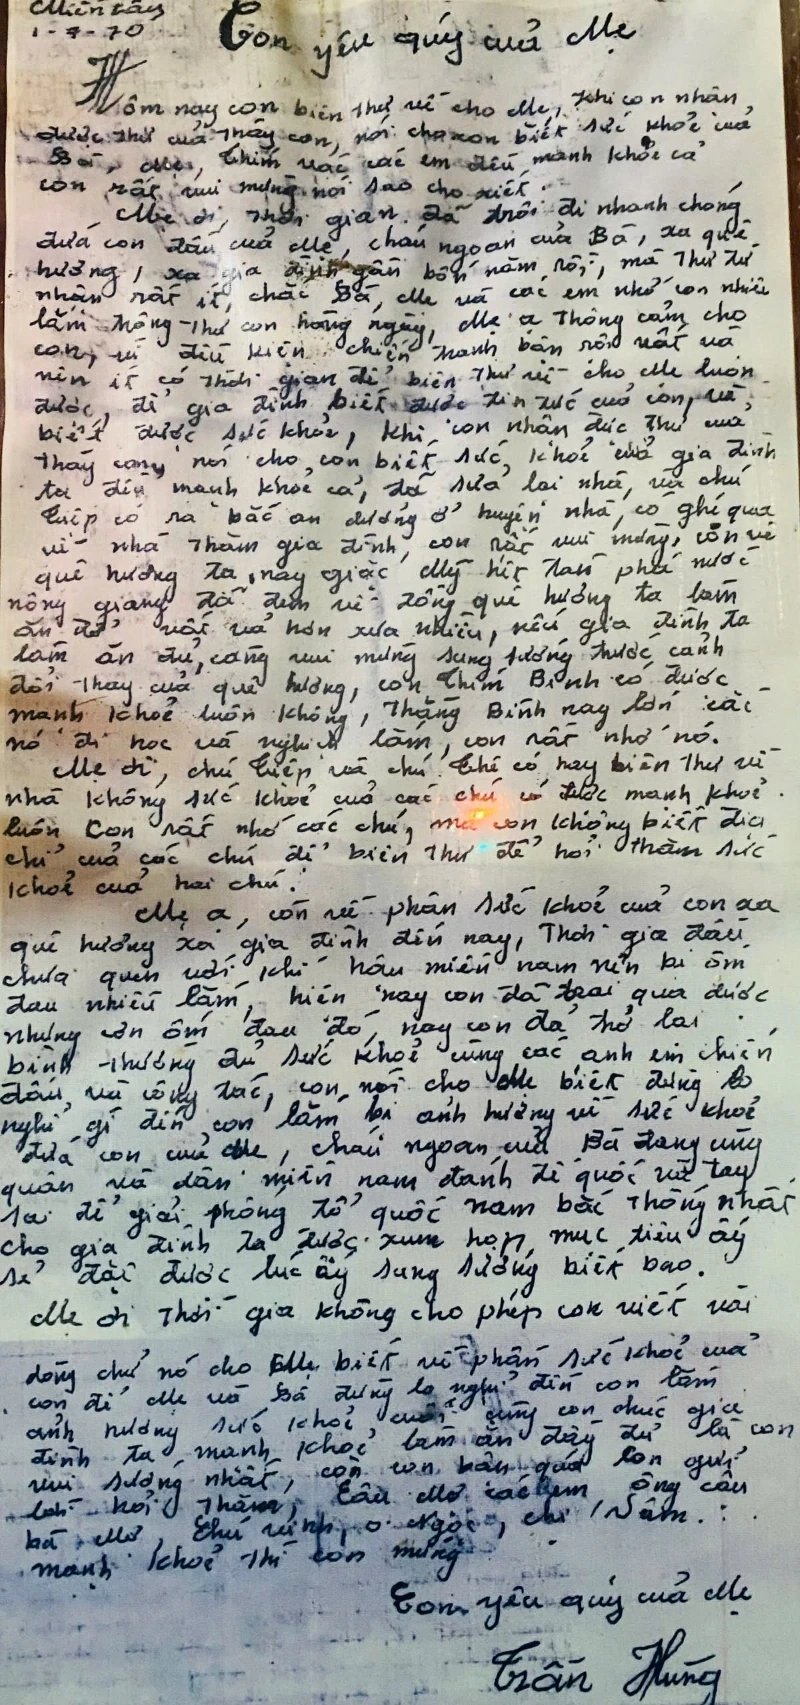 Miền tây
1-7-70
Con yêu quý của Mẹ
Hôm nay con biên thư về cho Mẹ, khi con nhận
được thư của thầy con, nói cho con biết sức khỏe của
Bà, Mẹ, thím và các em đều mạnh khỏe cả
con rất vui mừng nói sao cho xiết.
Mẹ ơi, thời gian đã trôi đi nhanh chóng
đứa con đầu của Mẹ, cháu ngoan của Bà, xa quê
hương, xa gia đình gần bốn năm rồi, mà thư từ
nhận rất ít, chắc Bà, Mẹ và các em nhớ con nhiều
lắm trông thư con hàng ngày, Mẹ ạ thông cảm cho
con, vì điều kiện chiến tranh bận rộn vất vả
nên ít có thời gian để biên thư về cho Mẹ luôn
được, để gia đình biết được tin tức của con, và
biết được sức khỏe, khi con nhận đức thư của
thầy con, nói cho con biết sức khỏe của gia đình
ta đều mạnh khỏe cả, đã sửa lại nhà, và chú
Tiếp có ra bắc an dưỡng ở huyện nhà, có ghé qua
về nhà thăm gia đình, con rất vui mừng, còn về
quê hương ta, nay giặc Mỹ hết tàn phá nước
nông giang đã đem về đồng quê hương ta làm
ăn đỡ vất vả hơn xưa nhiều, nếu gia đình ta
làm ăn đủ, càng vui mừng sung sướng trước cảnh
đổi thay của quê hương, còn thím Bình có được
mạnh khỏe luôn không, thằng Bình nay lớn các
nó đi học và nghịch lắm, con rất nhớ nó.
Mẹ ơi, chú Tiếp và chú Thê có hay biên thư về
nhà không sức khỏe của các chú có được mạnh khỏe
luôn Con rất nhớ các chú, mà con không biết địa
chỉ của các chú để biên thư để hỏi thăm sức
khỏe của hai chú.
Mẹ ạ, còn về phần sức khỏe của con xa
quê hương xa gia đình đến nay, Thời gia đầu
chưa quen với khí hậu miền nam nên bị ốm
đau nhiều lắm, hiện nay con đã trải qua được
những cơn ốm đau đó, nay con đã trở lại
bình thường đủ sức khỏe cùng các anh em chiến
đấu và công tác, con nói cho Mẹ biết đừng lo
nghĩ gì đến con lắm bị ảnh hưởng về sức khỏe
đứa con của Mẹ, cháu ngoan của Bà đang cùng
quân và dân miền nam đánh đế quốc và tay
sai để giải phóng tổ quốc nam bắc thống nhất
cho gia đình ta được xum họp, mục tiêu ấy
sẽ đạt được lúc ấy sung sướng biết bao.
Mẹ ơi thời gia không cho phép con viết vài
dòng chữ nó cho Mẹ biết về phần sức khỏe của
con để Mẹ và Bà đừng lo nghĩ đến con lắm
ảnh hưởng sức khỏe cuối cùng con chúc gia
đình ta mạnh khỏe làm ăn đầy đủ là con
vui sướng nhất, còn con bận quá con gửi
lời hỏi thăm, Cậu Mợ các em ông cậu
bà Mợ, Chú Vinh, o Ngọc, chị Năm.
mạnh khỏe thì con mừng
Con yêu quý của Mẹ
Trần Hùng